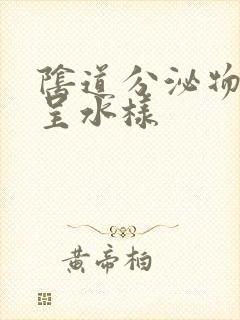 陰道分泌物
呈水樣
黃帝柏